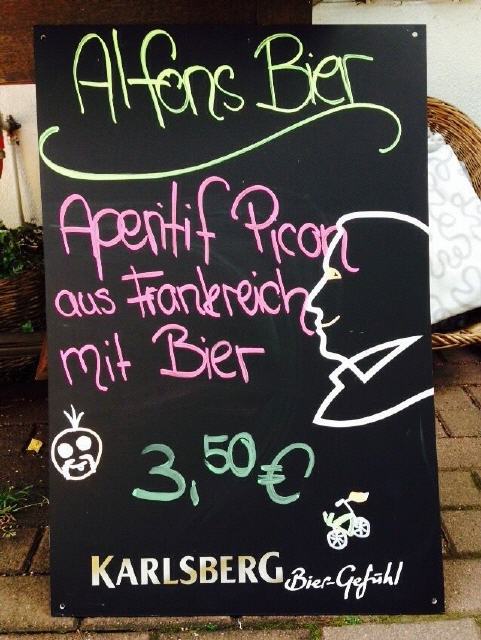 Alfons Bier
Aperitif Picon
aus Frankreich
mit Bier
3,50 €
KARLSBERG Bier-Gefühl